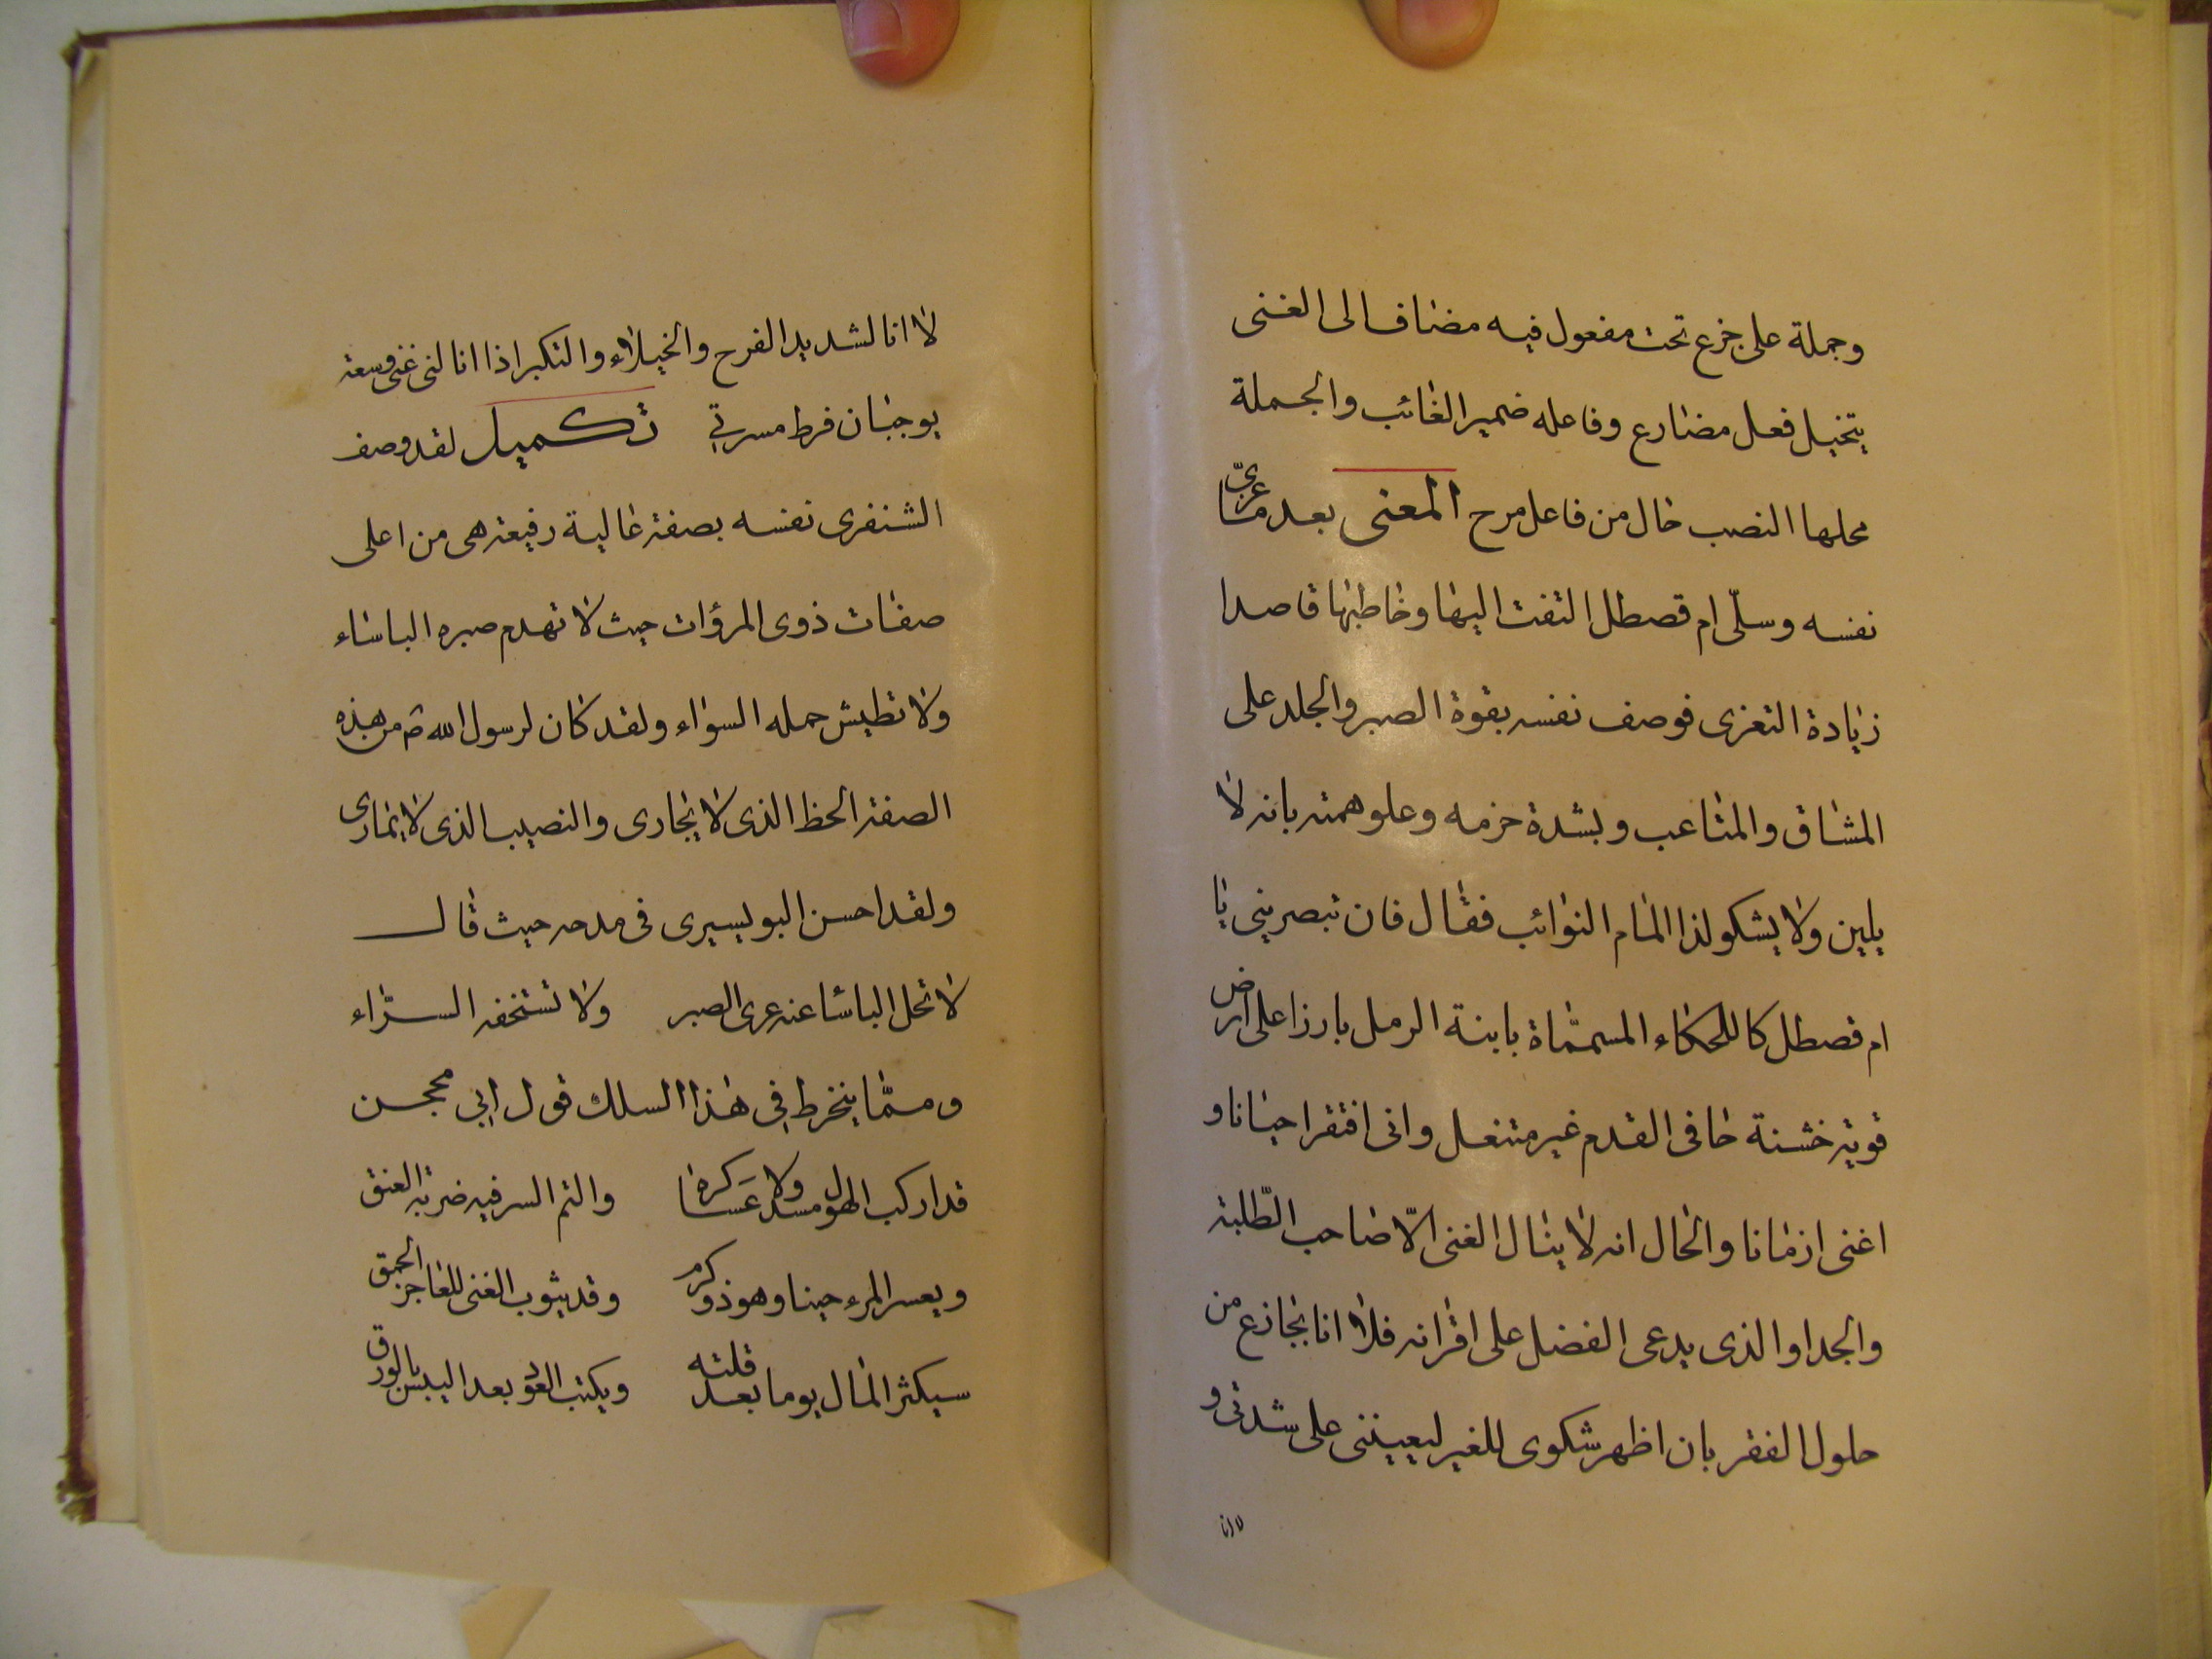 وجملة على جزع تحت مفعول فيه مضاف الى الغنى
يتخيل فعل مضارع وفاعله ضمير الغائب والجملة
محلها النصب حال من فاعل مرح المعنى بعد ما عزّى
نفسه وسلّى ام قصطل التفت اليها وخاطبها قاصدا
زيادة التعزى فوصف نفسه بقوة الصبر والجلد على
المشاق والمتاعب وبشدة حزمه وعلو همته بانه لا
يلين ولا يشكو لذا المام النوائب فقال فان تبصريني يا
ام قصطل كاللحكاء المسمّاة بابنة الرمل بارزا على ارض
قوية خشنة حافى القدم غير متنعل وانى افتقر احيانا و
اغنى ازمانا والحال انه لا ينال الغنى الّا صاحب الطّلبة
والجد او الذى يدعى الفضل على اقرانه فلا انا بجازع من
حلول الفقر بان اظهر شكوى للغير ليعيننى على شدتى و
لا انا
لا انا لشديد الفرح والخيلاء والتكبر اذا انا لنى غنى وسعة
يوجبان فرط مسرتي تكميل لقد وصف
الشنفرى نفسه بصفة عالية رفيعة هى من اعلى
صفات ذوى المرؤات حيث لا تهدم صبره الباساء
ولا تطيش حمله السواء ولقد كان لرسول الله ص من هذه
الصفة الحظ الذى لا يجارى والنصيب الذى لا يمارى
ولقد احسن البويسيرى فى مدحه حيث قال
لا تحل الباسا عنه عرى الصبر ولا تستخفه السرّاء
وممّا ينخرط في هذا السلك قول ابي محجن
قد اركب الهول مسدولا عساكره والتم السر فيه ضربة العنق
ويعسر المرء حينا وهو ذو كرم وقد يثوب الغنى للعاجز الحمق
سيكثر المال يوما بعد قلته ويكتب العود بعد اليبس بالورق